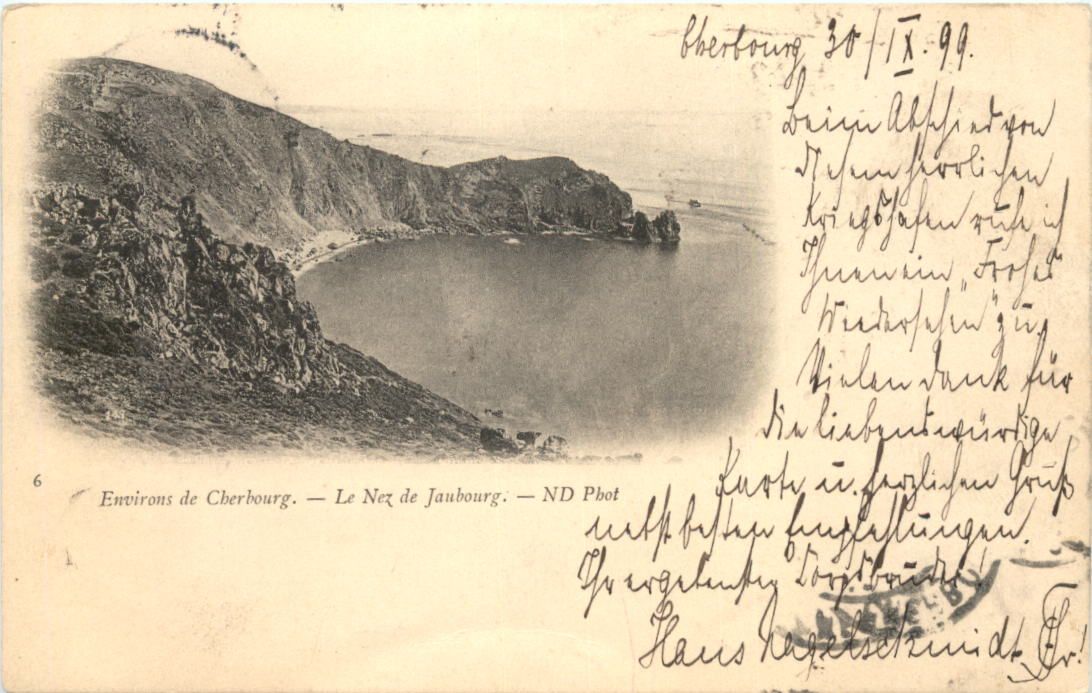 Cherbourg 30/IX. 99.
Beim Abschied von
diesem herrlichen
Kriegshafen rufe ich
Ihnen ein „Frohes
Wiedersehen" zu.
Vielen Dank für
die liebenswürdige
Karte u. herzlichen Gruß
nebst besten Empfehlungen.
Ihr ergebenster
Hans Nagelschmidt
6
Environs de Cherbourg. — Le Nez de Jaubourg. — ND Phot